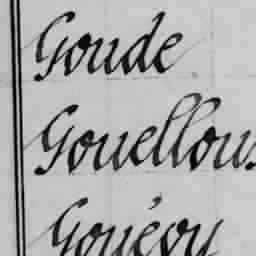 Goude
Gouellou
Gouévy